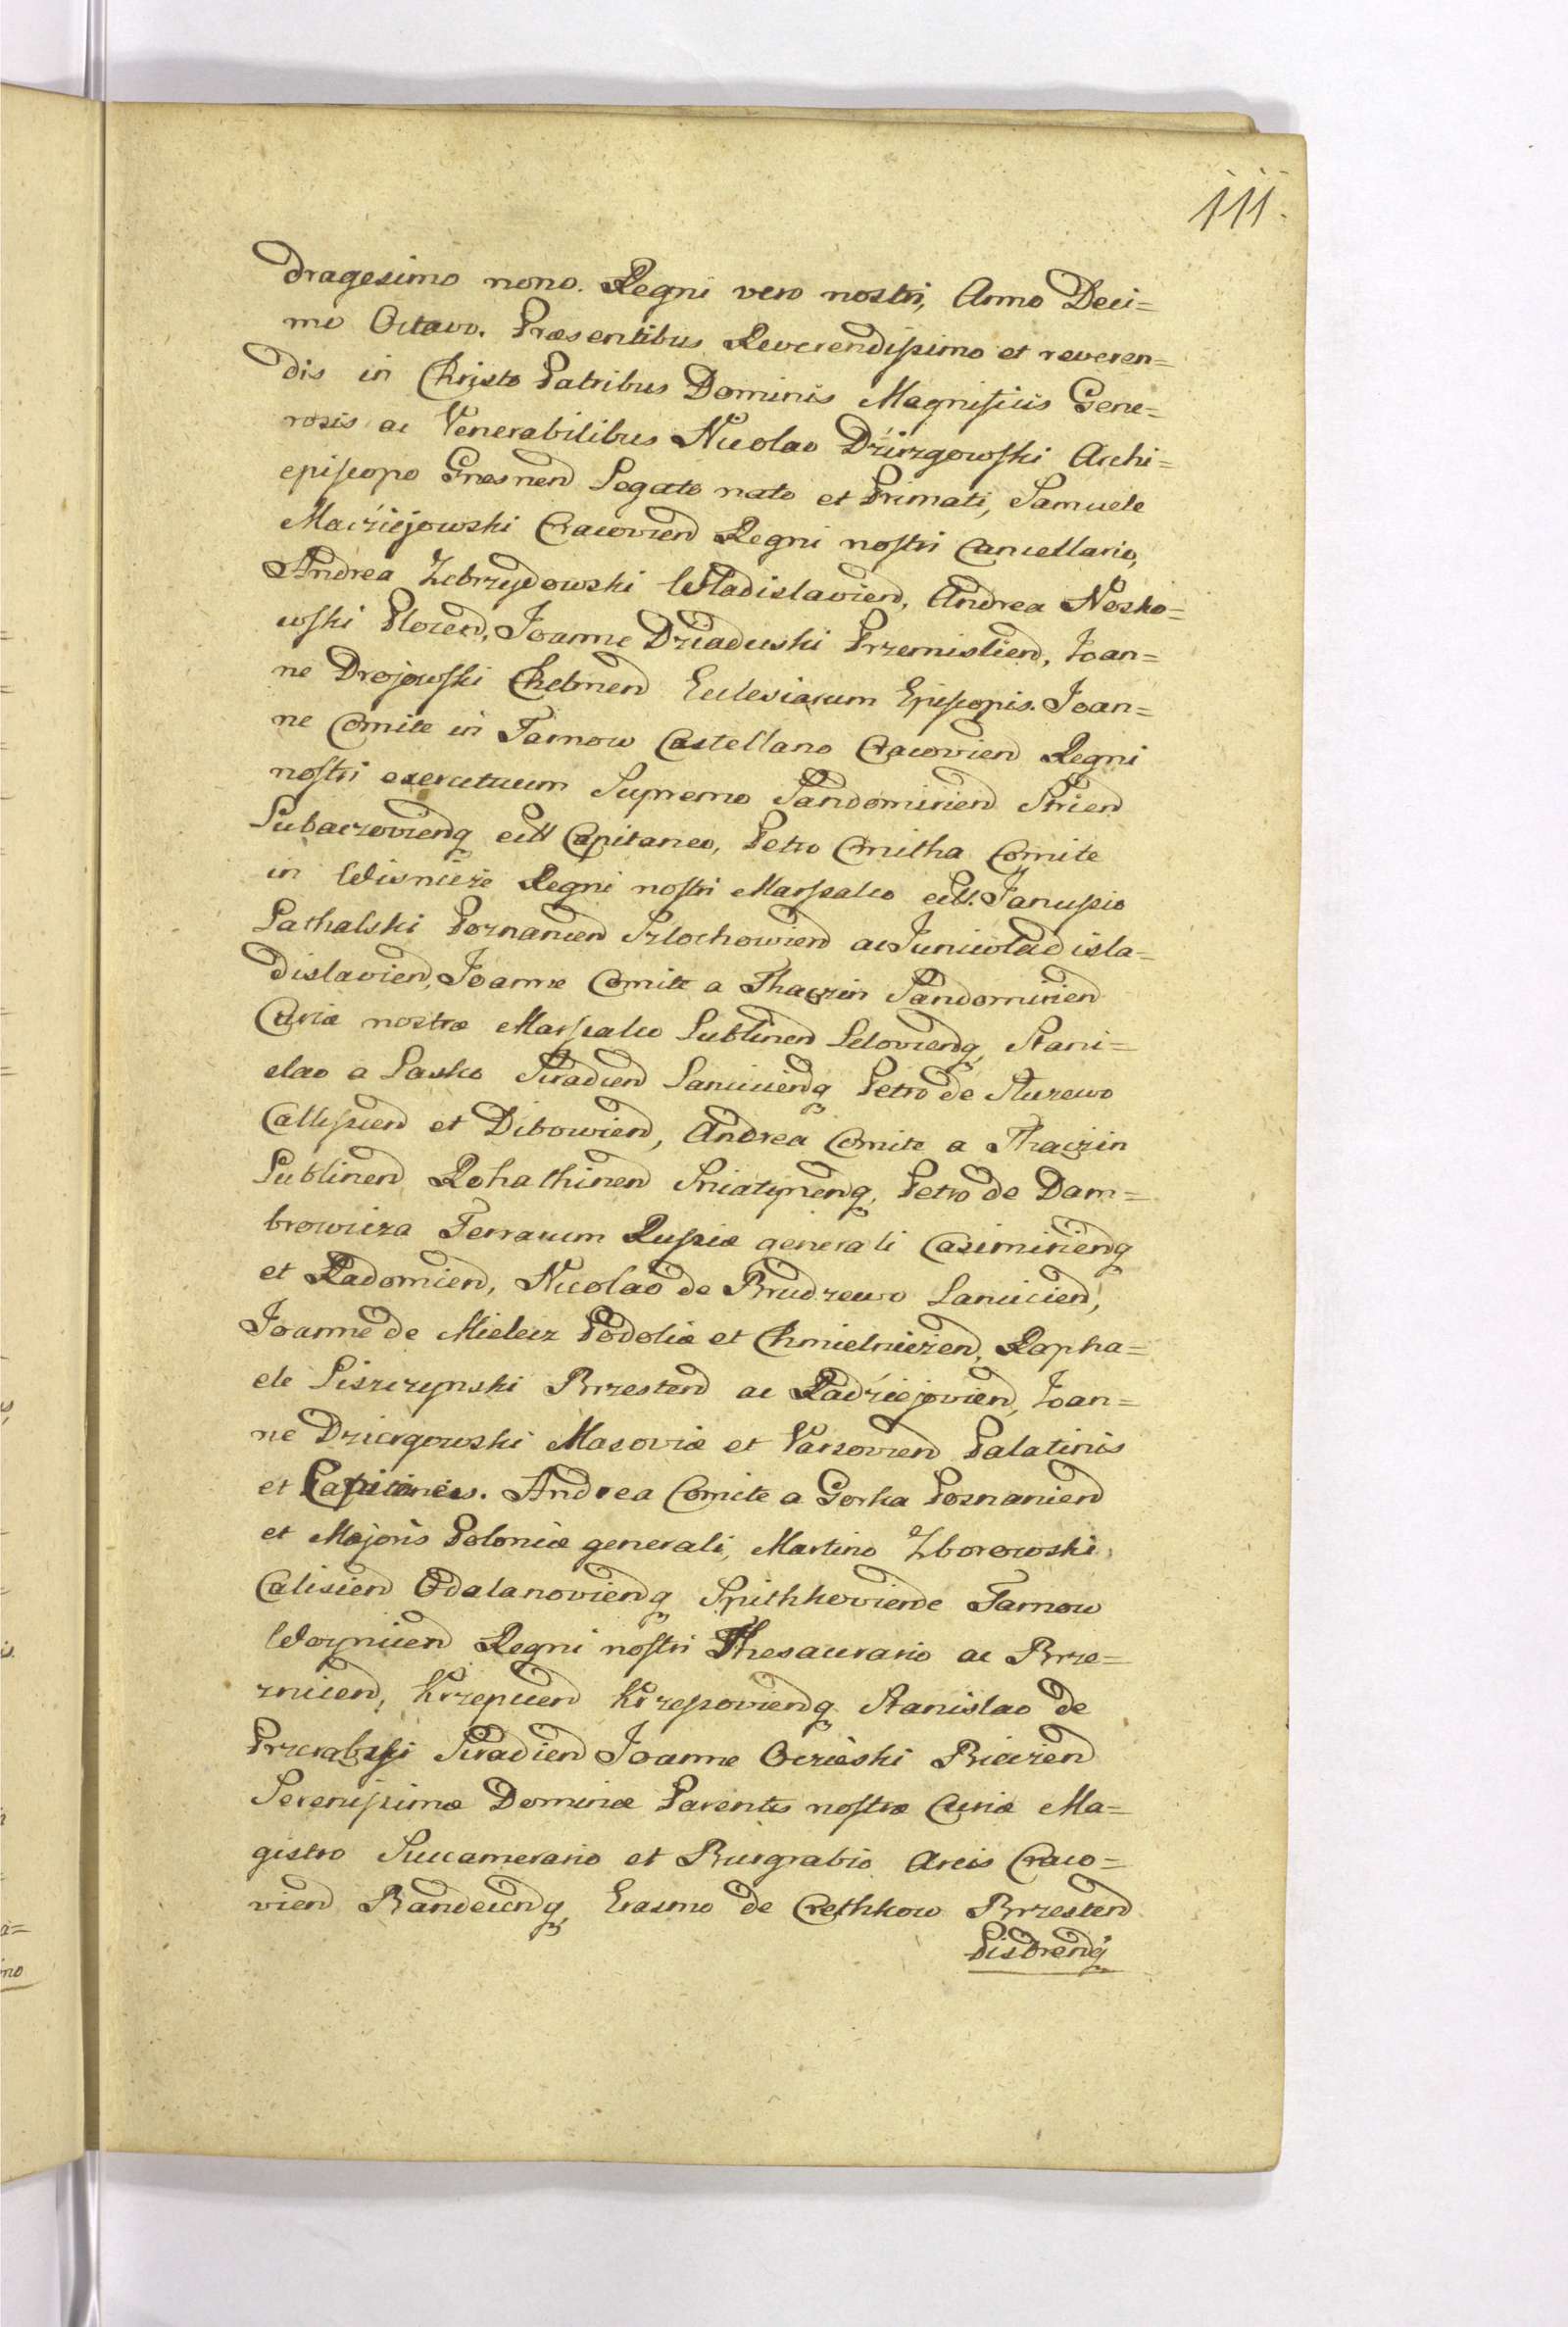 111.
dragesimo nono. Regni vero nostri, Anno Deci=
mo Octavo. Præsentibus Reverendissimo et reveren=
dis in Christo Patribus Dominis Magnificis Gene=
rosis ac Venerabilibus Nicolao Dzirzgowski Archi=
episcopo Gnesnen Legato nato et Primati, Samuele
Macziejowski Cracovien Regni nostri Cancellario,
Andrea Zebrzydowski Wladislavien, Andrea Nosko=
wski Plocen, Joanne Dziaduski Przemislien, Joan=
ne Drojowski Chelmen Ecclesiarum Episcopis. Joan=
ne Comite in Tarnow Castellano Cracovien Regni
nostri exercituum Supremo Sandomirien Strien
Lubaczovienq ect Capitaneo, Petro Cmitha Comite
in Wisnicze Regni nostri Marsalco ect. Janussio
Lathalski Poznanien Szlochowien ac Juniwladisla=
dislavien, Joanne Comite a Thaczin Sandomirien
Curiæ nostræ Marsalco Lublinen Lelovienq, Stani=
slao a Lasko Siradien Lanciciénq Petro de Sluzewo
Callissien et Dibowien, Andrea Comite a Thaczin
Lublinen Rohathinen Sniatynenq, Petro de Dam=
browicza Terrarum Russiæ generali Casimirienq
et Radomien, Nicolao de Brudzewo Lancicien,
Joanne de Mielecz Podoliæ et Chmielniczen, Rapha=
ele Liszczynski Brzesten ac Radziejovien, Joan=
ne Dziergowski Masoviæ et Varsovien Palatinis
et Capitaneis. Andrea Comite a Gorka Poznanien
et Majoris Poloniæ generali, Martino Zborowski
Calisien Odalanovienq Spithkoviende Tarnow
Woynicen Regni nostri Thesaurario ac Brze=
znicen, Krzepicen Krzessovienq Stanislao de
Przerabski Siradien Joanne Oczieski Bieczen
Serenissimæ Dominæ Parentis nostræ Curiæ Ma=
gistro Succamerario et Burgrabio Arcis Craco=
vien Bandecenq, Erasmo de Crethkow Brzesten
Pisdrenq